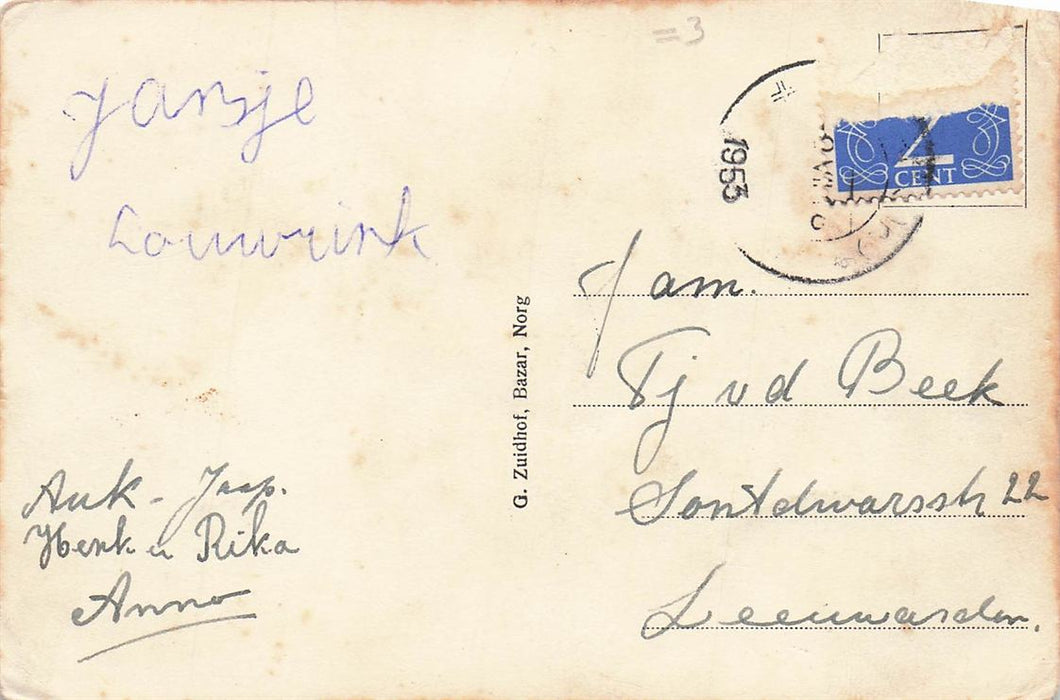 =3
Jansje
Louwrink
Auk - Jaap.
Henk en Rika
Anno
G. Zuidhof, Bazar, Norg
1953
2
CENT
Fam.
Tj v d Beek
Sontdwarsstr 22
Leeuwarden.